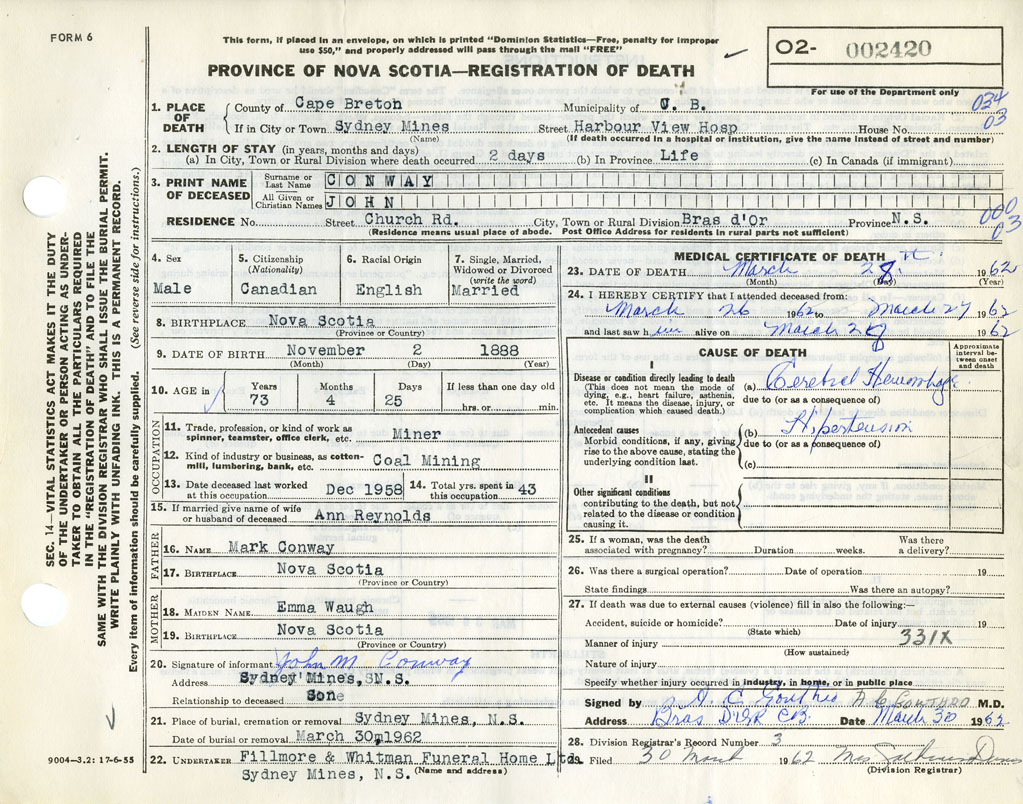 FORM 6
This form, if placed in an envelope, on which is printed "Dominion Statistics—Free, penalty for improper
use $50," and properly addressed will pass through the mail "FREE"
02- 002420
PROVINCE OF NOVA SCOTIA—REGISTRATION OF DEATH
For use of the Department only
034
03
1. PLACE OF DEATH
County of Cape Breton Municipality of C. B.
If in City or Town Sydney Mines Street Harbour View Hosp House No.
(Name) (If death occurred in a hospital or institution, give the name instead of street and number)
2. LENGTH OF STAY (in years, months and days)
(a) In City, Town or Rural Division where death occurred 2 days (b) In Province Life (c) In Canada (if immigrant)
3. PRINT NAME OF DECEASED
Surname or Last Name CONWAY
All Given or Christian Names JOHN
000
03
RESIDENCE No. Street Church Rd. City, Town or Rural Division Bras d'Or Province N.S.
(Residence means usual place of abode. Post Office Address for residents in rural parts not sufficient)
4. Sex
Male
5. Citizenship
(Nationality)
Canadian
6. Racial Origin
English
7. Single, Married,
Widowed or Divorced
(write the word)
Married
8. BIRTHPLACE Nova Scotia
(Province or Country)
9. DATE OF BIRTH November 2 1888
(Month) (Day) (Year)
10. AGE in
Years Months Days If less than one day old
73 4 25 hrs. or min.
OCCUPATION
11. Trade, profession, or kind of work as
spinner, teamster, office clerk, etc. Miner
12. Kind of industry or business, as cotton-
mill, lumbering, bank, etc. Coal Mining
13. Date deceased last worked
at this occupation Dec 1958
14. Total yrs. spent in
this occupation 43
15. If married give name of wife
or husband of deceased Ann Reynolds
FATHER
16. NAME Mark Conway
17. BIRTHPLACE Nova Scotia
(Province or Country)
MOTHER
18. MAIDEN NAME Emma Waugh
19. BIRTHPLACE Nova Scotia
(Province or Country)
20. Signature of informant John M Conway
Address Sydney Mines, N.S.
Relationship to deceased Son
21. Place of burial, cremation or removal Sydney Mines, N.S.
Date of burial or removal March 30, 1962
22. UNDERTAKER Fillmore & Whitman Funeral Home Ltd.
Sydney Mines, N.S. (Name and address)
MEDICAL CERTIFICATE OF DEATH
23. DATE OF DEATH March 28th 1962
(Month) (Day) (Year)
24. I HEREBY CERTIFY that I attended deceased from:
March 26 1962 to March 27 1962
and last saw him alive on March 28 1962
CAUSE OF DEATH
Approximate
interval be-
tween onset
and death
I
Disease or condition directly leading to death
(This does not mean the mode of
dying, e.g., heart failure, asthenia,
etc. It means the disease, injury, or
complication which caused death.)
(a) Cerebral Hemorrhage
due to (or as a consequence of)
Antecedent causes
Morbid conditions, if any, giving
rise to the above cause, stating the
underlying condition last.
(b) Hipertension
due to (or as a consequence of)
(c)
II
Other significant conditions
contributing to the death, but not
related to the disease or condition
causing it.
25. If a woman, was the death
associated with pregnancy? Duration weeks.
Was there
a delivery?
26. Was there a surgical operation? Date of operation 19
State findings Was there an autopsy?
27. If death was due to external causes (violence) fill in also the following:—
Accident, suicide or homicide? Date of injury 19
(State which)
331X
Manner of injury
(How sustained)
Nature of injury
Specify whether injury occurred in industry, in home, or in public place
Signed by A. C. Gouthro A C GOUTHRO M.D.
Address Bras D'Or CB. Date March 30 1962
28. Division Registrar's Record Number 3
29. Filed 30 March 1962 Mrs
(Division Registrar)
9004-3.2: 17-6-55
SEC. 14—VITAL STATISTICS ACT MAKES IT THE DUTY
OF THE UNDERTAKER OR PERSON ACTING AS UNDER-
TAKER TO OBTAIN ALL THE PARTICULARS REQUIRED
IN THE "REGISTRATION OF DEATH" AND TO FILE THE
SAME WITH THE DIVISION REGISTRAR WHO SHALL ISSUE THE BURIAL PERMIT.
WRITE PLAINLY WITH UNFADING INK. THIS IS A PERMANENT RECORD.
Every item of information should be carefully supplied. (See reverse side for instructions.)